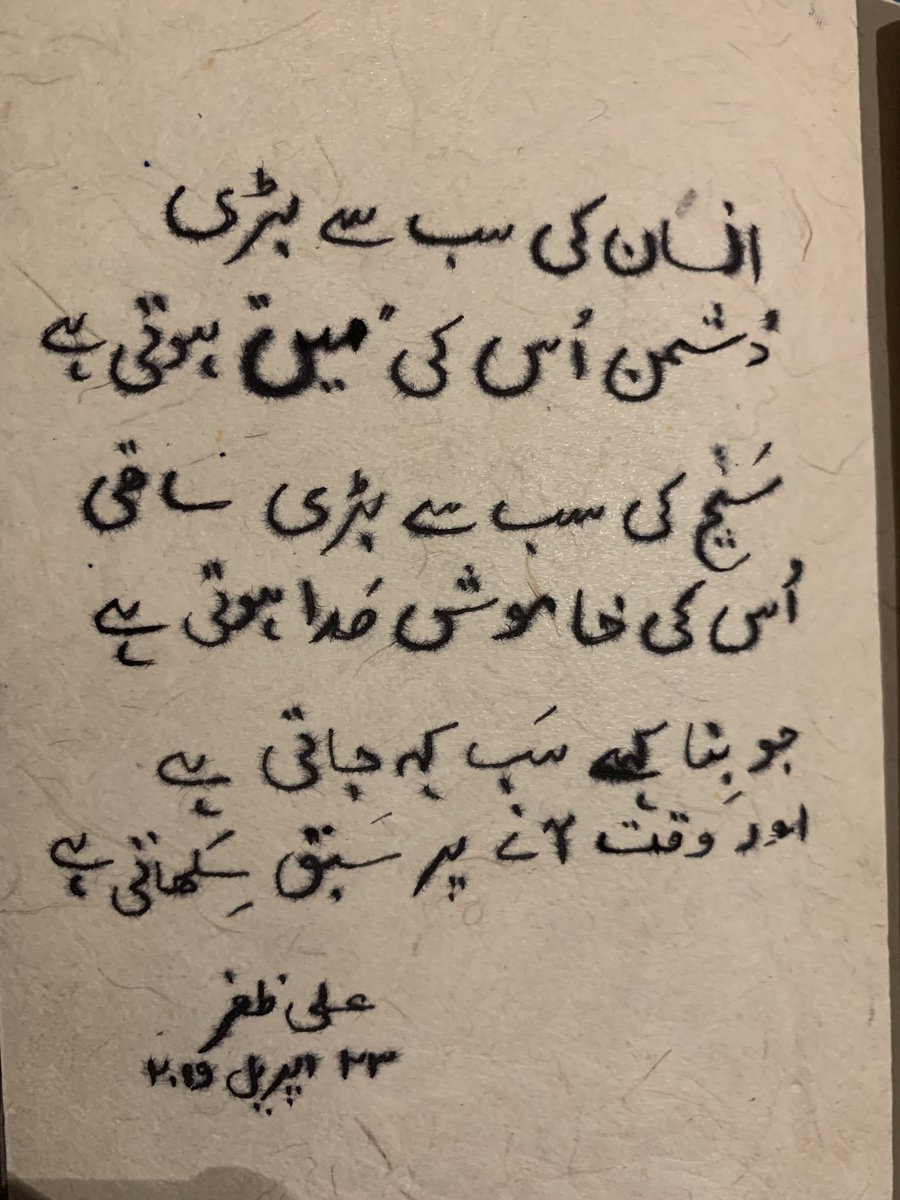 انسان کی سب سے بڑی
دُشمن اُس کی "میں" ہوتی ہے
سَچ کی سب سے بڑی ساتھی
اُس کی خاموش صَدا ہوتی ہے
جو بِنا کہے سَب کہہ جاتی ہے
اور وَقت آنے پر سَبق سِکھاتی ہے
علی ظفر
۲۳ اپریل ۲۰۱۹